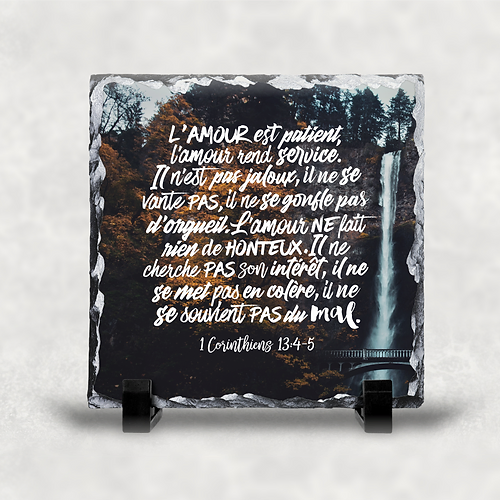 L'AMOUR est patient,
l'amour rend service.
Il n'est pas jaloux, il ne se
vante PAS, il ne se gonfle pas
d'orgueil. L'amour NE fait
rien de HONTEUX. Il ne
cherche PAS son intérêt, il ne
se met pas en colère, il ne
se souvient PAS du mal.
1 Corinthiens 13:4-5